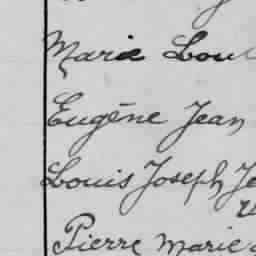 Marie Lou
Eugène Jean
Louis Joseph Je
Pierre Marie